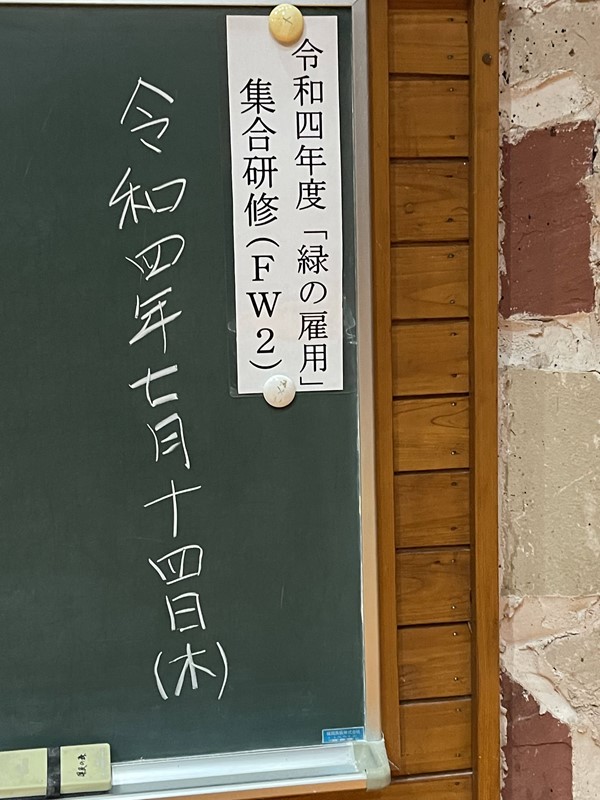 令和四年度「緑の雇用」
集合研修(FW2)
令和四年七月十四日(木)